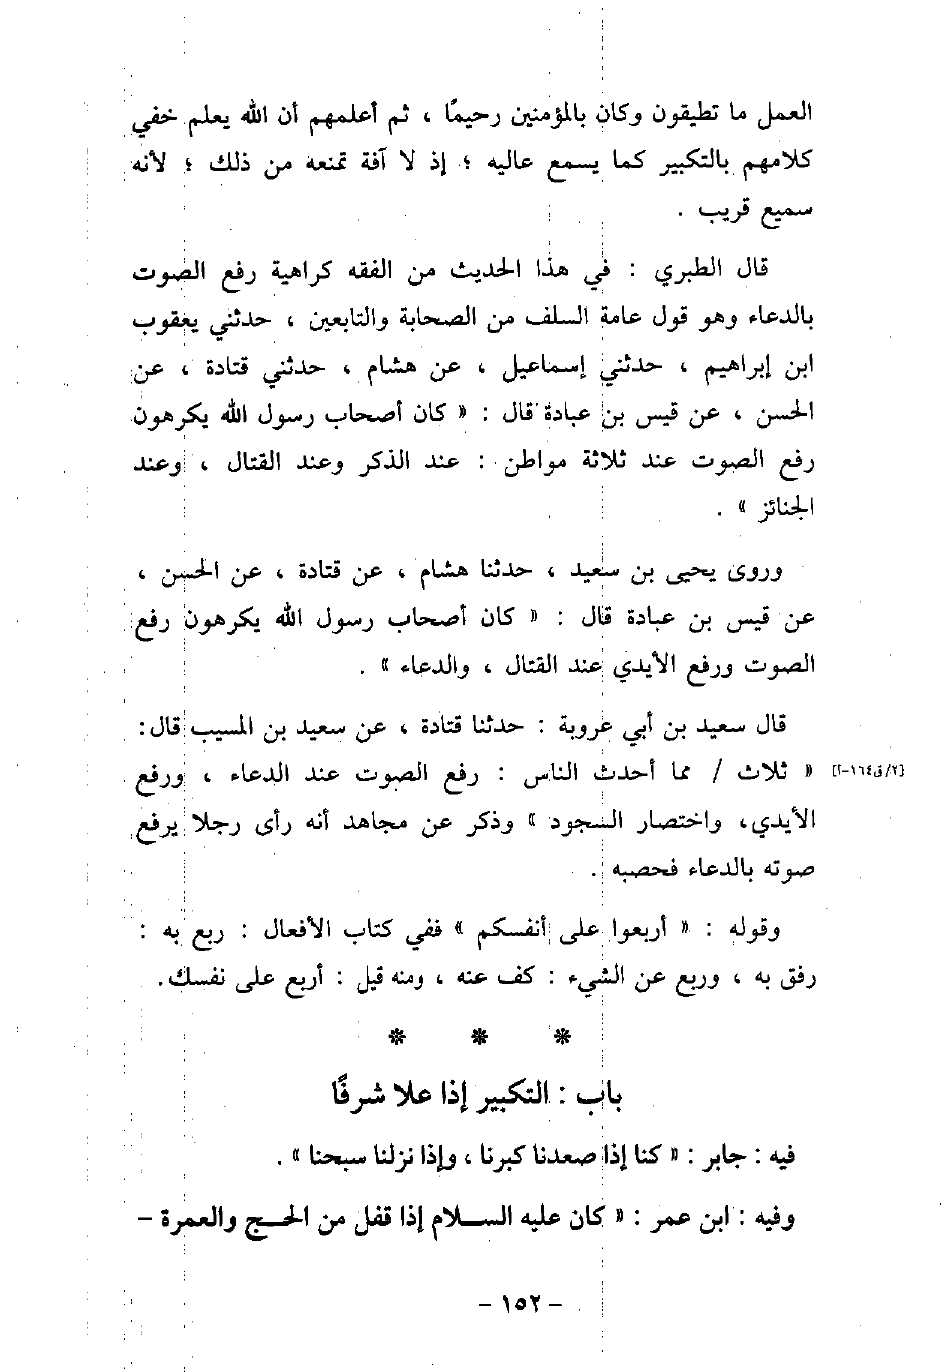 العمل ما تطيقون وكان بالمؤمنين رحيمًا ، ثم أعلمهم أن الله يعلم خفي
كلامهم بالتكبير كما يسمع عاليه ؛ إذ لا آفة تمنعه من ذلك ؛ لأنه
سميع قريب .
قال الطبري : في هذا الحديث من الفقه كراهية رفع الصوت
بالدعاء وهو قول عامة السلف من الصحابة والتابعين ، حدثني يعقوب
ابن إبراهيم ، حدثني إسماعيل ، عن هشام ، حدثني قتادة ، عن
الحسن ، عن قيس بن عبادة قال : « كان أصحاب رسول الله يكرهون
رفع الصوت عند ثلاثة مواطن : عند الذكر وعند القتال ، وعند
الجنائز » .
وروى يحيى بن سعيد ، حدثنا هشام ، عن قتادة ، عن الحسن ،
عن قيس بن عبادة قال : « كان أصحاب رسول الله يكرهون رفع
الصوت ورفع الأيدي عند القتال ، والدعاء » .
قال سعيد بن أبي عروبة : حدثنا قتادة ، عن سعيد بن المسيب قال :
« ثلاث / مما أحدث الناس : رفع الصوت عند الدعاء ، ورفع
[٢/ق١٦٤-أ]
الأيدي، واختصار السجود » وذكر عن مجاهد أنه رأى رجلا يرفع
صوته بالدعاء فحصبه .
وقوله : « أربعوا على أنفسكم » ففي كتاب الأفعال : ربع به :
رفق به ، وربع عن الشيء : كف عنه ، ومنه قيل : أربع على نفسك.
* * *
باب : التكبير إذا علا شرفًا
فيه : جابر : « كنا إذا صعدنا كبرنا ، وإذا نزلنا سبحنا » .
وفيه : ابن عمر : « كان عليه السلام إذا قفل من الحج والعمرة –
– ١٥٢ –